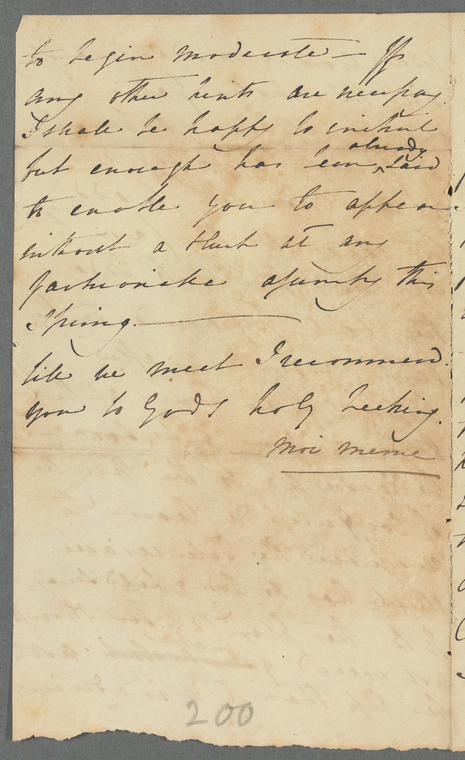 to begin moderate — If
any other hints are necessary
I shall be happy to instruct
but enough has been already said
to enable you to appear
without a blush at any
fashionable assembly this
Spring.
till we meet I recommend
you to Gods holy keeping.
Moi meme
200